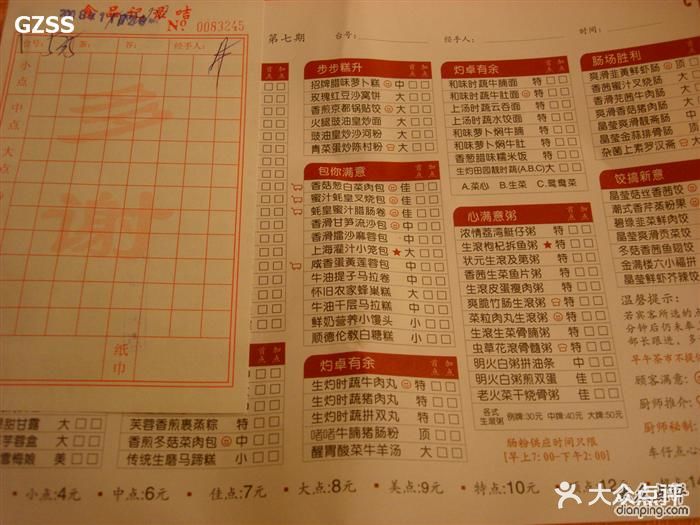 GZSS
食品记录咭
No 0083245
台号:
茶:
经手人:
小点
中点
大点
纸巾
第七期
台号:
经手人:
时间:
首点 加点
步步糕升
招牌腊味萝卜糕 中
玫瑰红豆沙窝饼 大
香煎京都锅贴饺 大
火腿豉油皇炒面 大
豉油皇炒沙河粉 大
青菜蛋炒陈村粉 大
包你满意
香菇葱白菜肉包 佳
蜜汁蚝皇叉烧包 佳
蚝皇蜜汁腊肠卷 中
香滑甘笋流沙包 中
香滑擂沙麻蓉包 中
上海灌汁小笼包 ★ 大
咸香蛋黄莲蓉包 中
牛油提子马拉卷 中
怀旧农家蜂巢糕 大
牛油千层马拉糕 中
鲜奶营养小馒头 小
顺德伦教白糖糕 小
灼卓有余
生灼时蔬牛肉丸 特
生灼时蔬猪肉丸 特
生灼时蔬拼双丸 特
啫啫牛腩猪肠粉 顶
醒胃酸菜牛羊汤 大
灼卓有余
和味时蔬牛腩面 特
和味时蔬牛肚面 特
上汤时蔬云吞面 特
上汤时蔬水饺面 特
和味萝卜焖牛腩 特
和味萝卜焖牛肚 特
香葱腊味糯米饭 特
生灼田园靓时蔬(A,B,C) 大
A.菜心 B.生菜 C.鸳鸯菜
心满意粥
浓情荔湾艇仔粥 特
生滚枸杞拆鱼粥 ★ 特
状元生滚及第粥 特
香茜生菜鱼片粥 特
生滚皮蛋瘦肉粥 特
爽脆竹肠生滚粥 特
菜粒肉丸生滚粥 特
生滚生菜骨腩粥 特
虫草花滚骨髓粥 特
明火白粥拼油条 中
明火白粥煎双蛋 佳
老火菜干烧骨粥 佳
各式生滚粥 例牌:30元 中牌:40元 大牌:50元
肠粉供应时间只限
【早上7:00-下午2:00】
肠场胜利
爽滑韭黄鲜虾肠 顶
香茜蜜汁叉烧肠
香滑芫茜牛肉肠
香滑香菇猪肉肠
晶莹爽滑靓斋肠
晶莹金蒜排骨肠
杂菌上素罗汉斋
饺搞新意
晶莹菇丝香茜饺
潮式香芹蒸粉果
碧绿韭菜鲜肉饺
晶莹爽滑贡菜饺
冬菇香茜鱼翅饺
金满楼六小福拼
晶莹虾芹洋葱饺
温馨提示:
若宾客所选的点
分钟后仍未奉
部长跟进,多
早午茶市不接
顾客满意:
厨师推介:
厨师秘制:
车仔点心:
甜甘露 大
芋蓉盒 大
雪梅娘 美
芙蓉香煎裹蒸粽 特
香煎冬菇菜肉包 中
传统生磨马蹄糕 小
·小点:4元 ·中点:6元 ·佳点:7元 ·大点:8元 ·美点:9元 ·特点:10元
大众点评
dianping.com